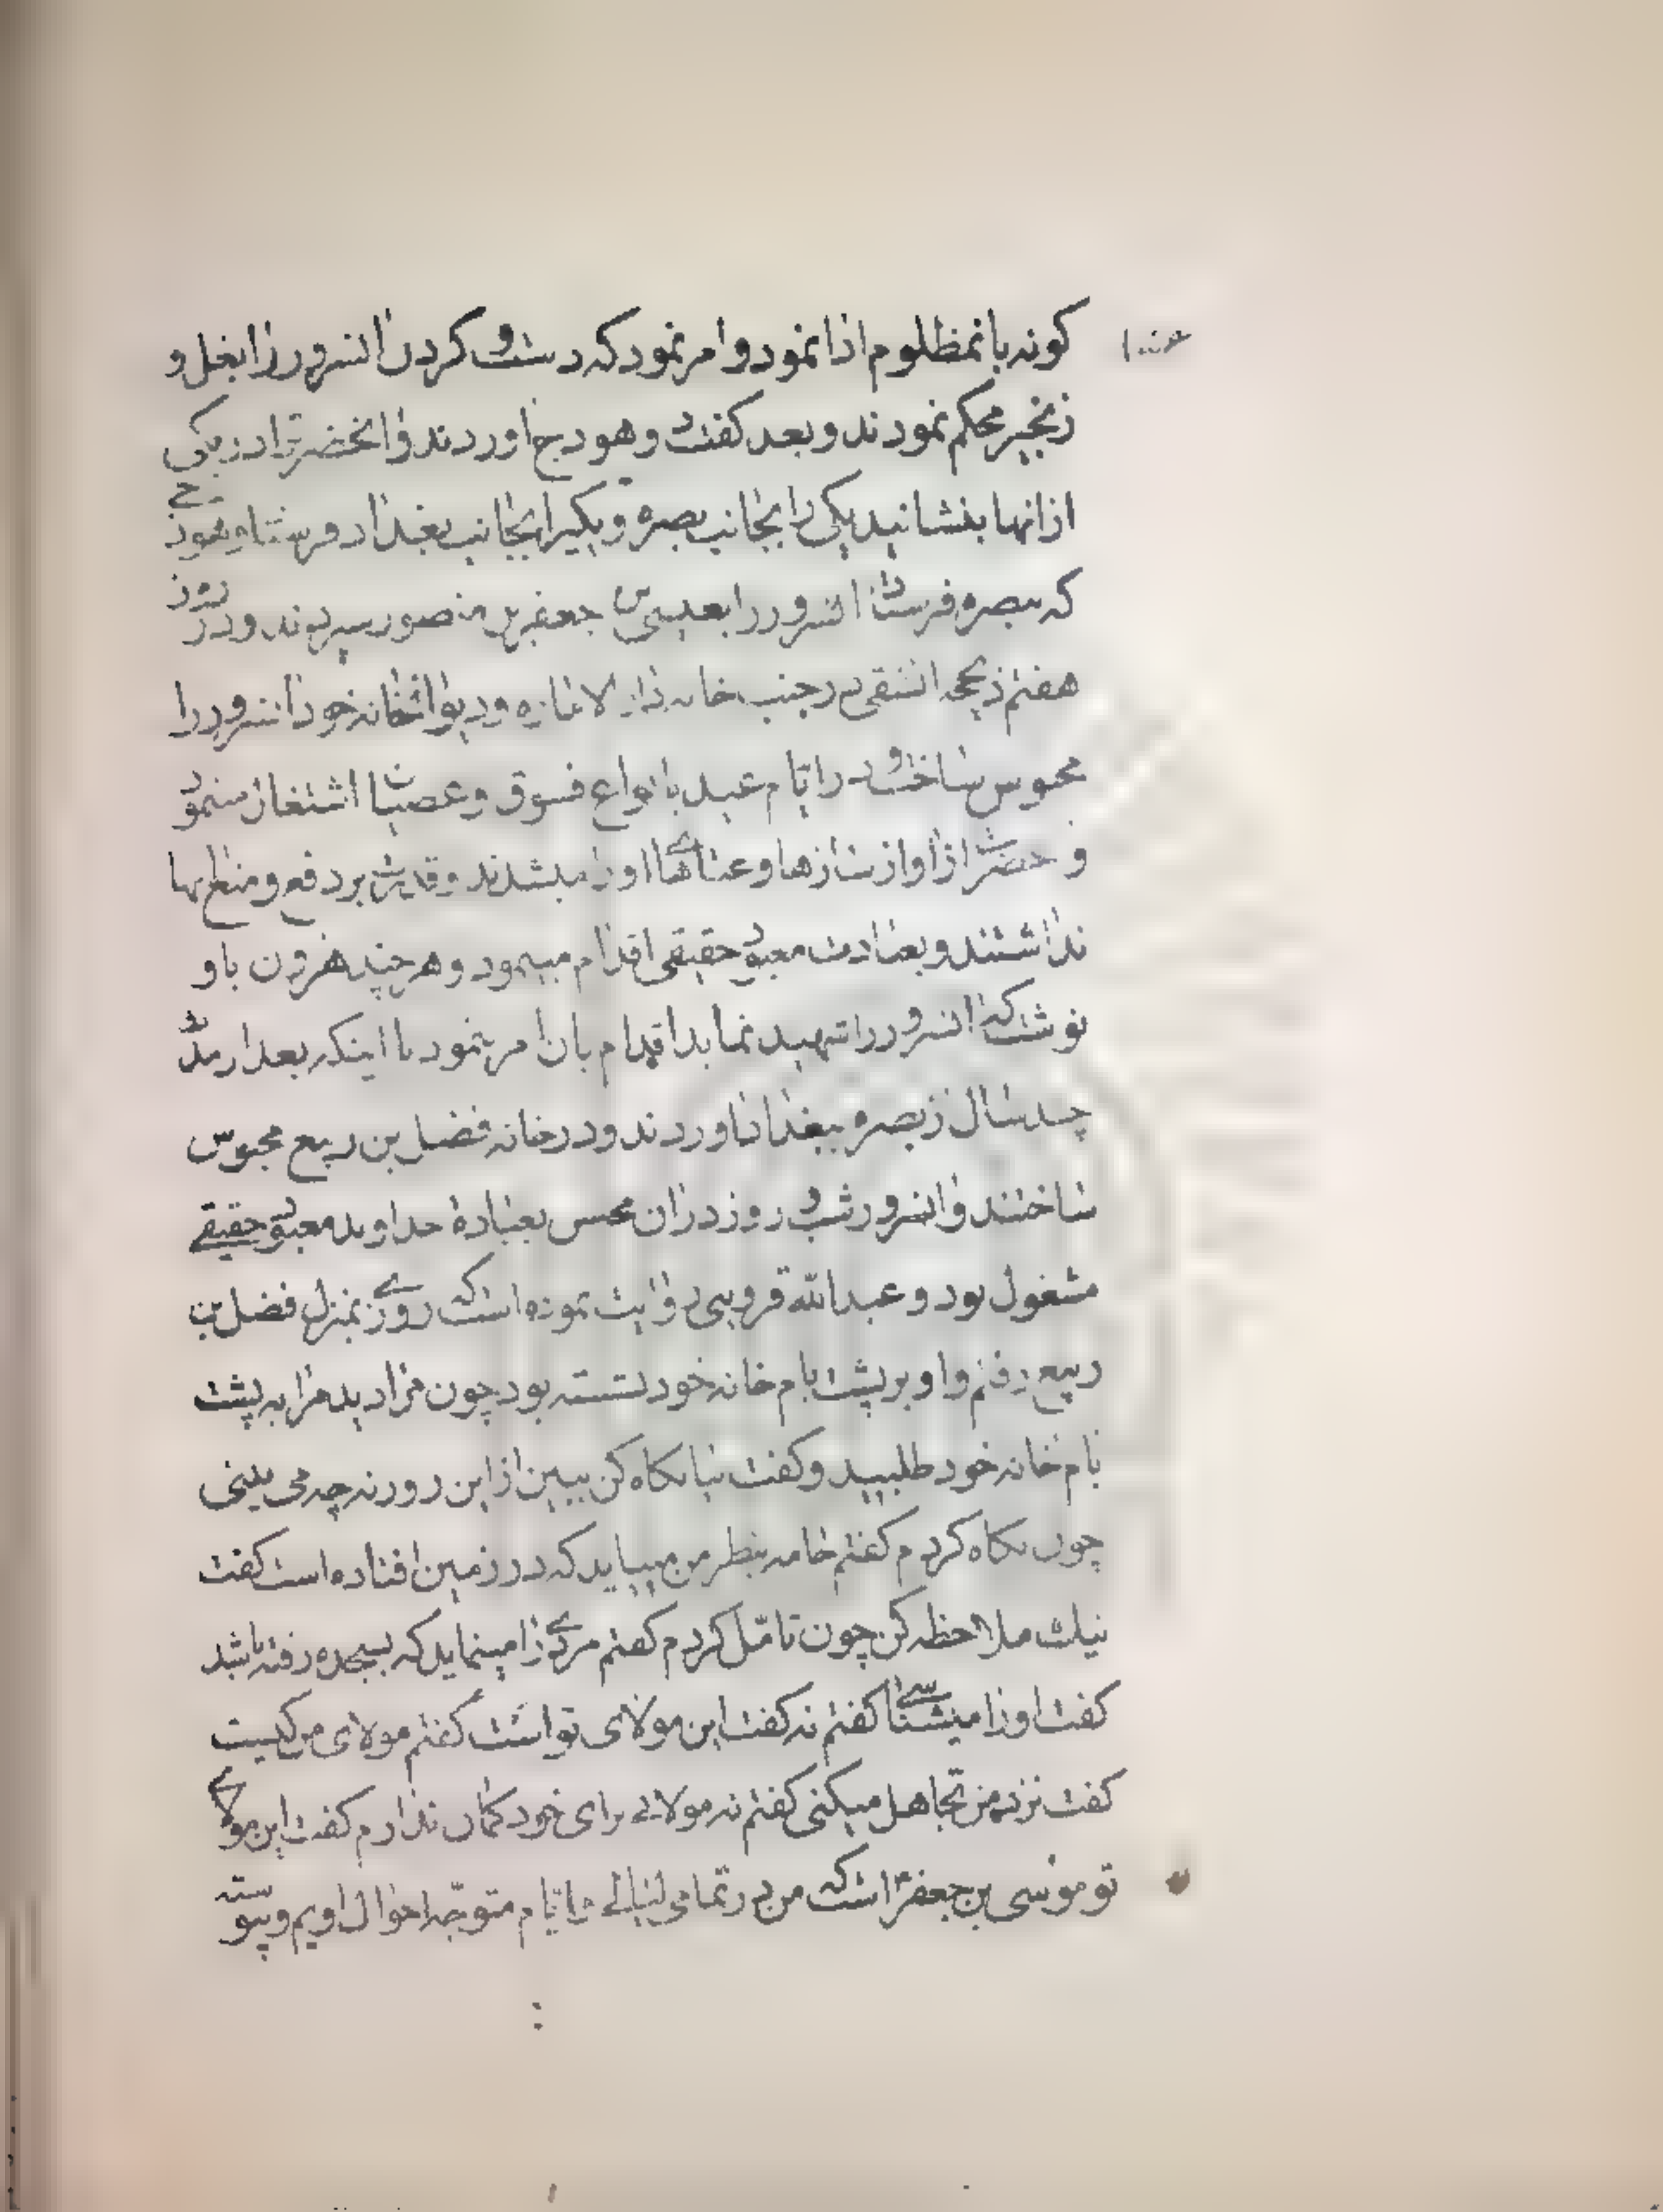 کونه بانمظلوم اذا نمود و امر نمود که دست و کردن انسرور را بغل و
زنجیر محکم نمودند و بعد کفت دو هودج اوردند و انحضرترا در یکی
از انها بنشانید یکی را بجانب بصره و یکیرا بجانب بغداد فرستاد و
که ببصره فرستاد انسرور را بعیسی بن جعفر بن منصور سپردند و در روز
هفتم ذیحجه انشقی در جنب خانه دار الاماره و دیوانخانه خود انسرور را
محبوس ساخت و در ایام عید بانواع فسوق و عصیان اشتغال مینمود
و حضرت از اواز سازها و غناهای او را میشدند و قدرت بر دفع و منع انها
نداشتند و بعبادت معبود حقیقی اقدام مینمود و هر چند هرون باو
نوشت که انسرور را شهید نماید اقدام بان امر ننمود تا اینکه بعد از مدت
چند سال از بصره ببغداد اوردند و در خانه فضل بن ربیع محبوس
ساختند و انسرور شب و روز در ان محبس بعباده خداوند معبود حقیقی
مشغول بود و عبدالله قروینی روایت نموده است که روزی بمنزل فضل بن
ربیع رفتم و او بر پشت بام خانه خود نشسته بود چون مرا دید مرا به پشت
بام خانه خود طلبید و کفت بیا نکاه کن ببین از این روزنه چه می بینی
چون نکاه کردم کفتم جامه بنظر من میاید که در زمین افتاده است کفت
نیک ملاحظه کن چون تامّل کردم کفتم مردی را مینماید که بسجده رفته باشد
کفت او را میشناسی کفتم نه کفت این مولای تو است کفتم مولای من کیست
کفت نزد من تجاهل میکنی کفتم نه مولائی برای خود کمان ندارم کفت این مولای
تو موسی بن جعفر است که من در تمامی لیالی و ایام متوجّه احوال اویم و پیوسته